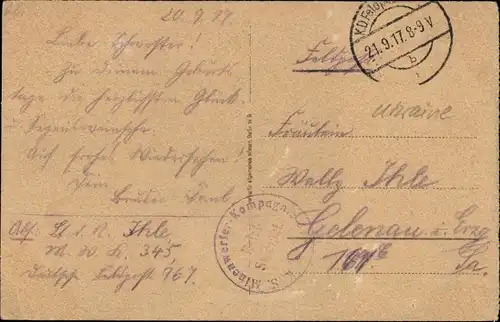 20.9.17.
Liebe Schwester!
Zu Deinem Geburts
tage die herzlichsten Glück-
u. Segenswünsche.
Auf frohes Wiedersehen!
Dein
Bruder Paul
Abs: Lt d. R. Ihle
M. W. K. 345,
Deutsche Feldpost 767.
K.D. Feldp
21.9.17. 8-9 V
b
Feldpost
Ukraine
Fräulein
Ihle
Gelenau i. Erzg
Sa.
Minenwerfer-Kompagnie